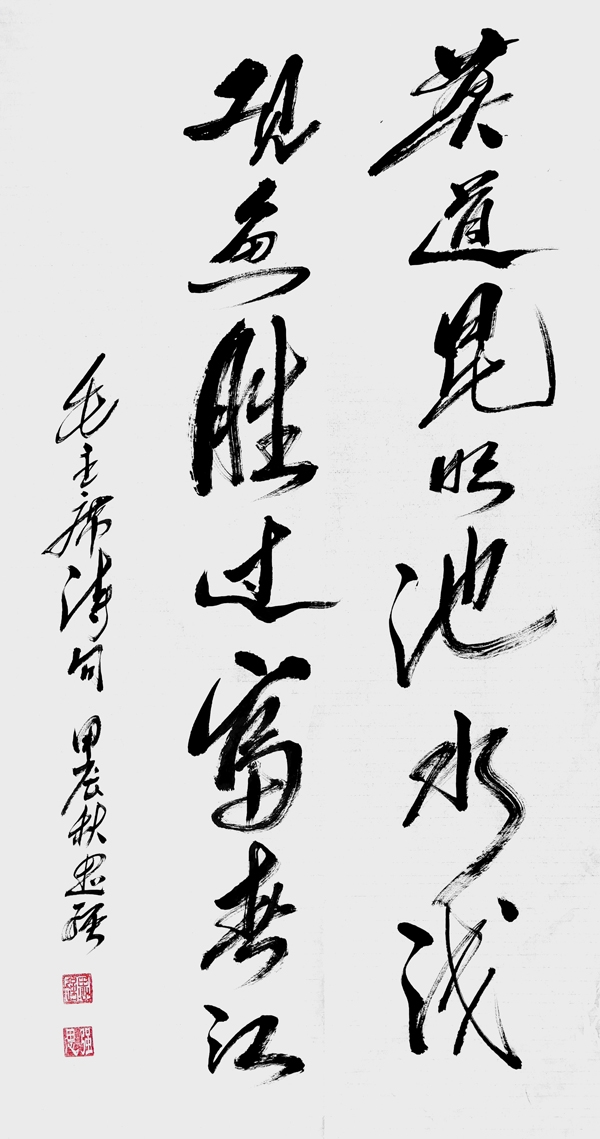 莫道昆明池水浅
观鱼胜过富春江
毛主席诗句 甲辰秋